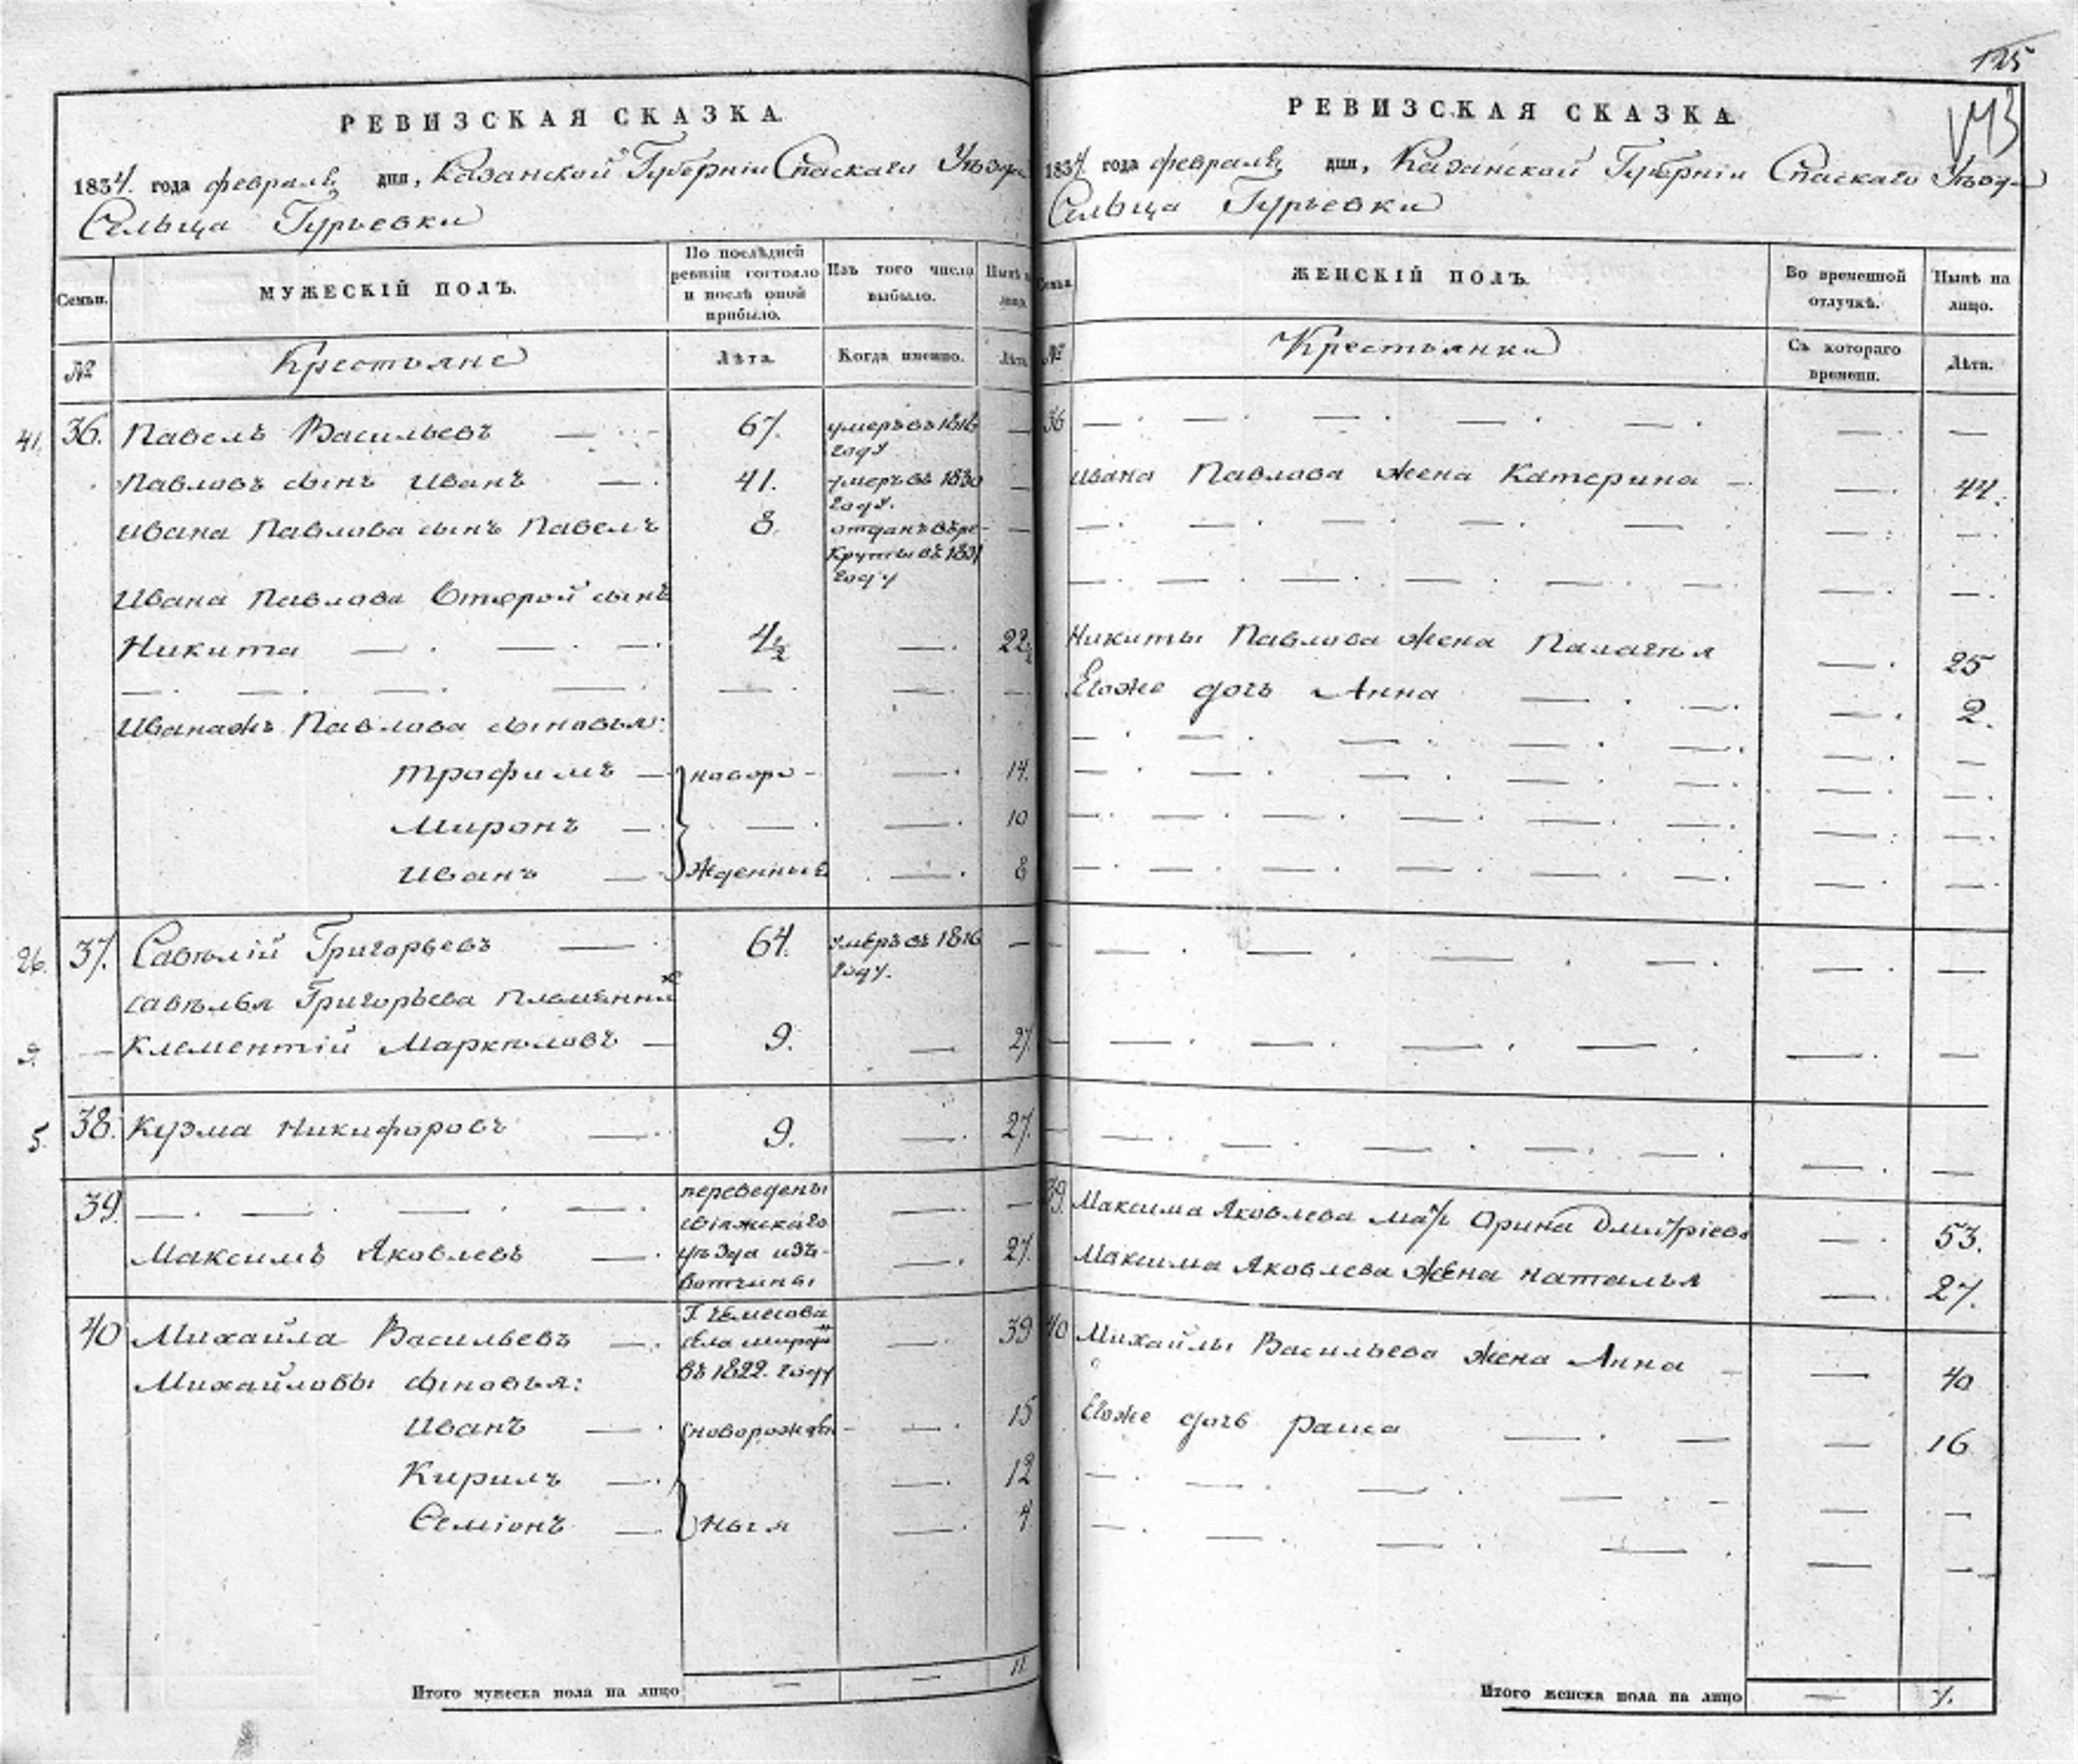 125
143
РЕВИЗСКАЯ СКАЗКА.
1834. года февраля дня, Казанской Губернiи Спаскаго Уѣзда
Сельца Гурьевки
Семьи.
МУЖЕСКIЙ ПОЛЪ.
По послѣдней ревизiи состояло и послѣ оной прибыло.
Изъ того числа выбыло.
Нынѣ на лицо.
№ Крестьяне Лѣта. Когда именно. Лѣта.
41. 36. Павелъ Васильевъ — 67. умеръ въ 1816 году —
Павловъ сынъ Иванъ — 41. умеръ въ 1830 году. —
Ивана Павлова сынъ Павелъ 8. отданъ въ рекруты въ 1831 году —
Ивана Павлова второй сынъ
Никита — 4½ — 22½
Иванажъ Павлова сыновья:
Трофимъ — новоро- — 14.
Миронъ — — — 10
Иванъ — жденные — 8
26. 37. Савѣлiй Григорьевъ — 64. умеръ въ 1816 году. —
Савѣлья Григорьева племянникъ
9. — Клементiй Маркѣловъ — 9. — 27.
5. 38. Кузма Никифоровъ — 9. — 27.
39. — переведены —
Максимъ Яковлевъ — свiяжскаго уѣзда изъ вотчины — 27.
40 Михайла Васильевъ — Г. села въ 1822. году — 39
Михайловы сыновья:
Иванъ — новорожден- — 15
Кирилъ — — 12
Семiонъ — ныя — 4
Итого мужеска пола на лицо — — 11
РЕВИЗСКАЯ СКАЗКА.
1834. года февраля дня, Казанской Губернiи Спаскаго Уѣзда
Сельца Гурьевки
Семьи.
ЖЕНСКIЙ ПОЛЪ.
Во временной отлучкѣ.
Нынѣ на лицо.
№ Крестьянки Съ котораго времени. Лѣта.
36 — — —
Ивана Павлова жена Катерина — — 44.
Никиты Павлова жена Палагѣя — 25
Егоже дочь Анна — — 2.
39. Максима Яковлева мать Орина Дмитрiева — 53.
Максима Яковлева жена Наталья — 27.
40 Михайлы Васильева жена Анна — — 40
Егоже дочь Раиса — — 16
Итого женска пола на лицо — 7.